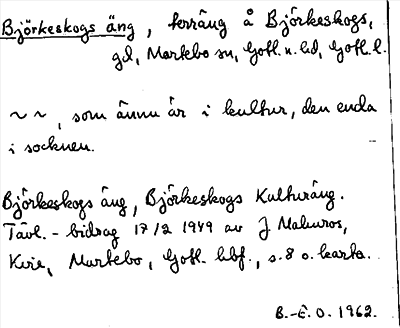 Björkeskogs äng, terräng å Björkeskogs,
gd, Martebo sn, Gotl. n. hd, Gotl. l.
~ ~, som ännu är i kultur, den enda
i socknen.
Björkeskogs äng, Björkeskogs Kulturäng.
Tävl.-bidrag 17/2 1949 av J Malmros,
Kvie, Martebo, Gotl. hbf., s. 8 o. karta.
B.-E. O. 1962.